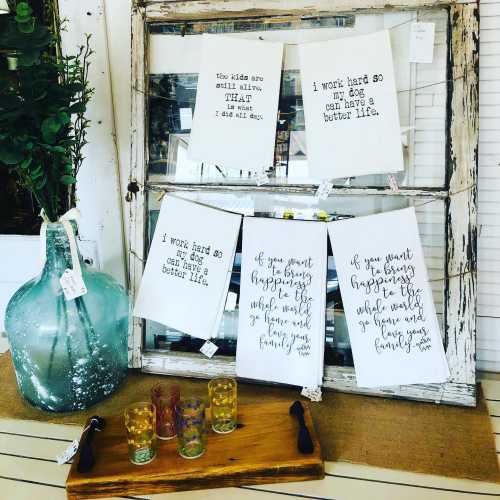 the kids are
still alive.
THAT
is what
I did all day.
i work hard so
my dog
can have a
better life.
i work hard so
my dog
can have a
better life.
if you want
to bring
happiness
to the
whole world,
go home and
love your
family.
if you want
to bring
happiness
to the
whole world,
go home and
love your
family.